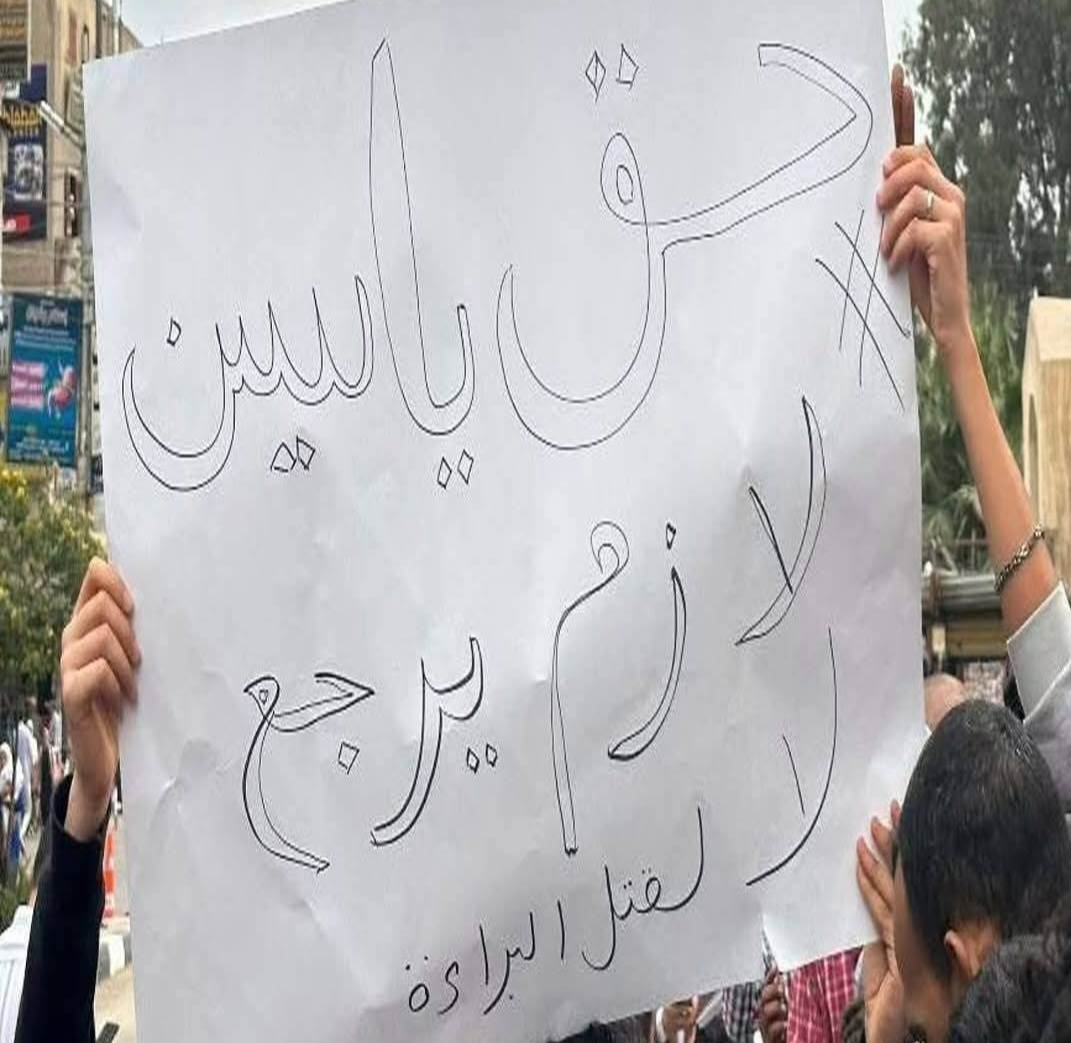 # حق ياسين
لازم يرجع
لا لقتل البراءة